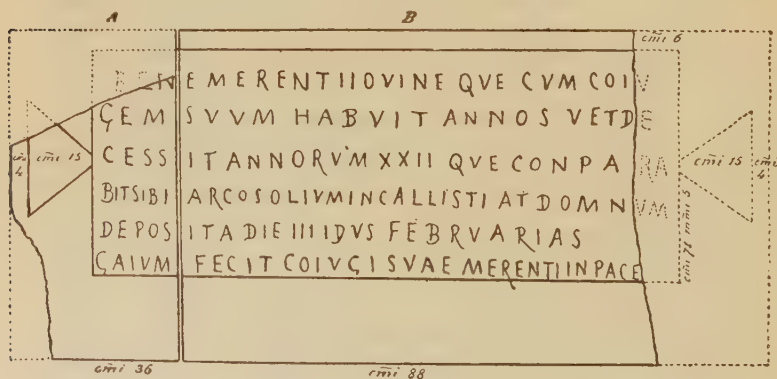 A B
cm̃i 6
BENEMERENTIIOVINE QVE CVM COIV
GEM SVVM HABVIT ANNOS VETDE
CESSIT ANNORVM XXII QVE CONPARA
BITSIBI ARCOSOLIVMINCALLISTI AT DOMNVM
DEPOSITA DIE IIIIDVS FEBRVARIAS
GAIVM FECIT COIVGI SVAE MERENTIINPACE
cm̃i 4
cm̃i 15
cm̃i 15
cm̃i 4
cm̃i 71 mm̃i 5
cm̃i 36
cm̃i 88